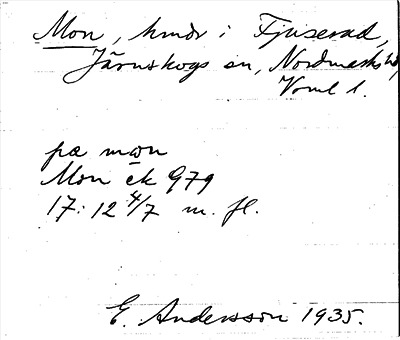 Mon, hmdr i Fjuserud,
Järnskogs sn, Nordmarks hd,
Vrml l.
pæ mæn
Mon ek 979
17:12 4/7 m. fl.
E. Andersson 1935.